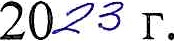 2023 г.